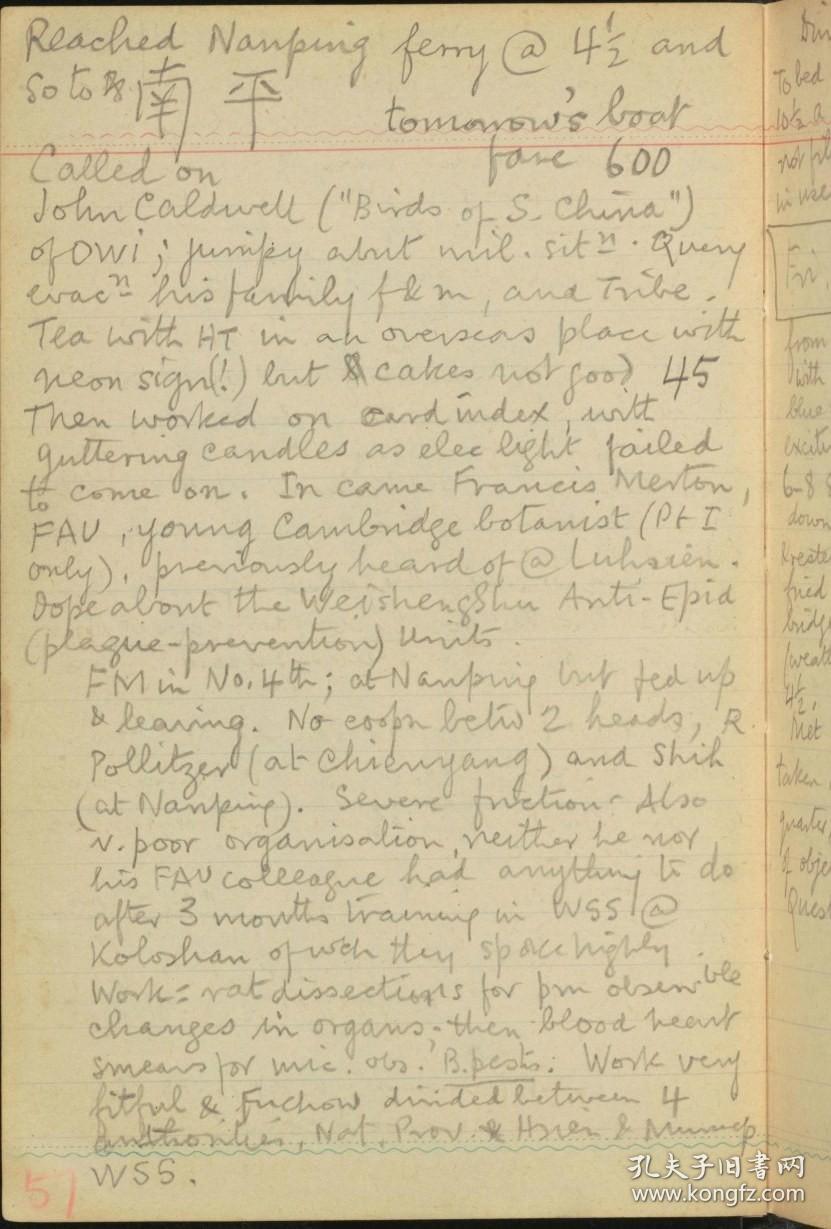 Reached Nanping ferry @ 4½ and
so to 南平 tomorrow's boat
fare 600
Called on
John Caldwell ("Birds of S. China")
of OWI; jumpy abut mil. sitⁿ. Query
evacⁿ his family f & m, and Tribe.
Tea with HT in an overseas place with
neon sign(!) but cakes not good 45
Then worked on card index, with
guttering candles as elec light failed
to come on. In came Francis Merton,
FAU, young Cambridge botanist (Pt I
only), previously heard of @ Luhsien.
Dope about the WeishengShu Anti-Epid
(plague-prevention) Units.
FM in No. 4th; at Nanping but fed up
& leaving. No coopn betw 2 heads, R.
Pollitzer (at Chienyang) and Shih
(at Nanping). Severe friction. Also
v. poor organisation, neither he nor
his FAU colleague had anything to do
after 3 months training in WSS @
Koloshan of wch they spoke highly.
Work = rat dissections for pm observable
changes in organs, then blood heart
smears for mic. obs. B. pestis. Work very
fitful & Fuchow divided between 4
authorities, Nat. Prov. & Hsien & Municip
WSS.
51
To bed
10½
in use
Fri
from
with
blue
6-8
down
fried
4½,
Met
taken
of obje
Quest
孔夫子旧书网
www.kongfz.com